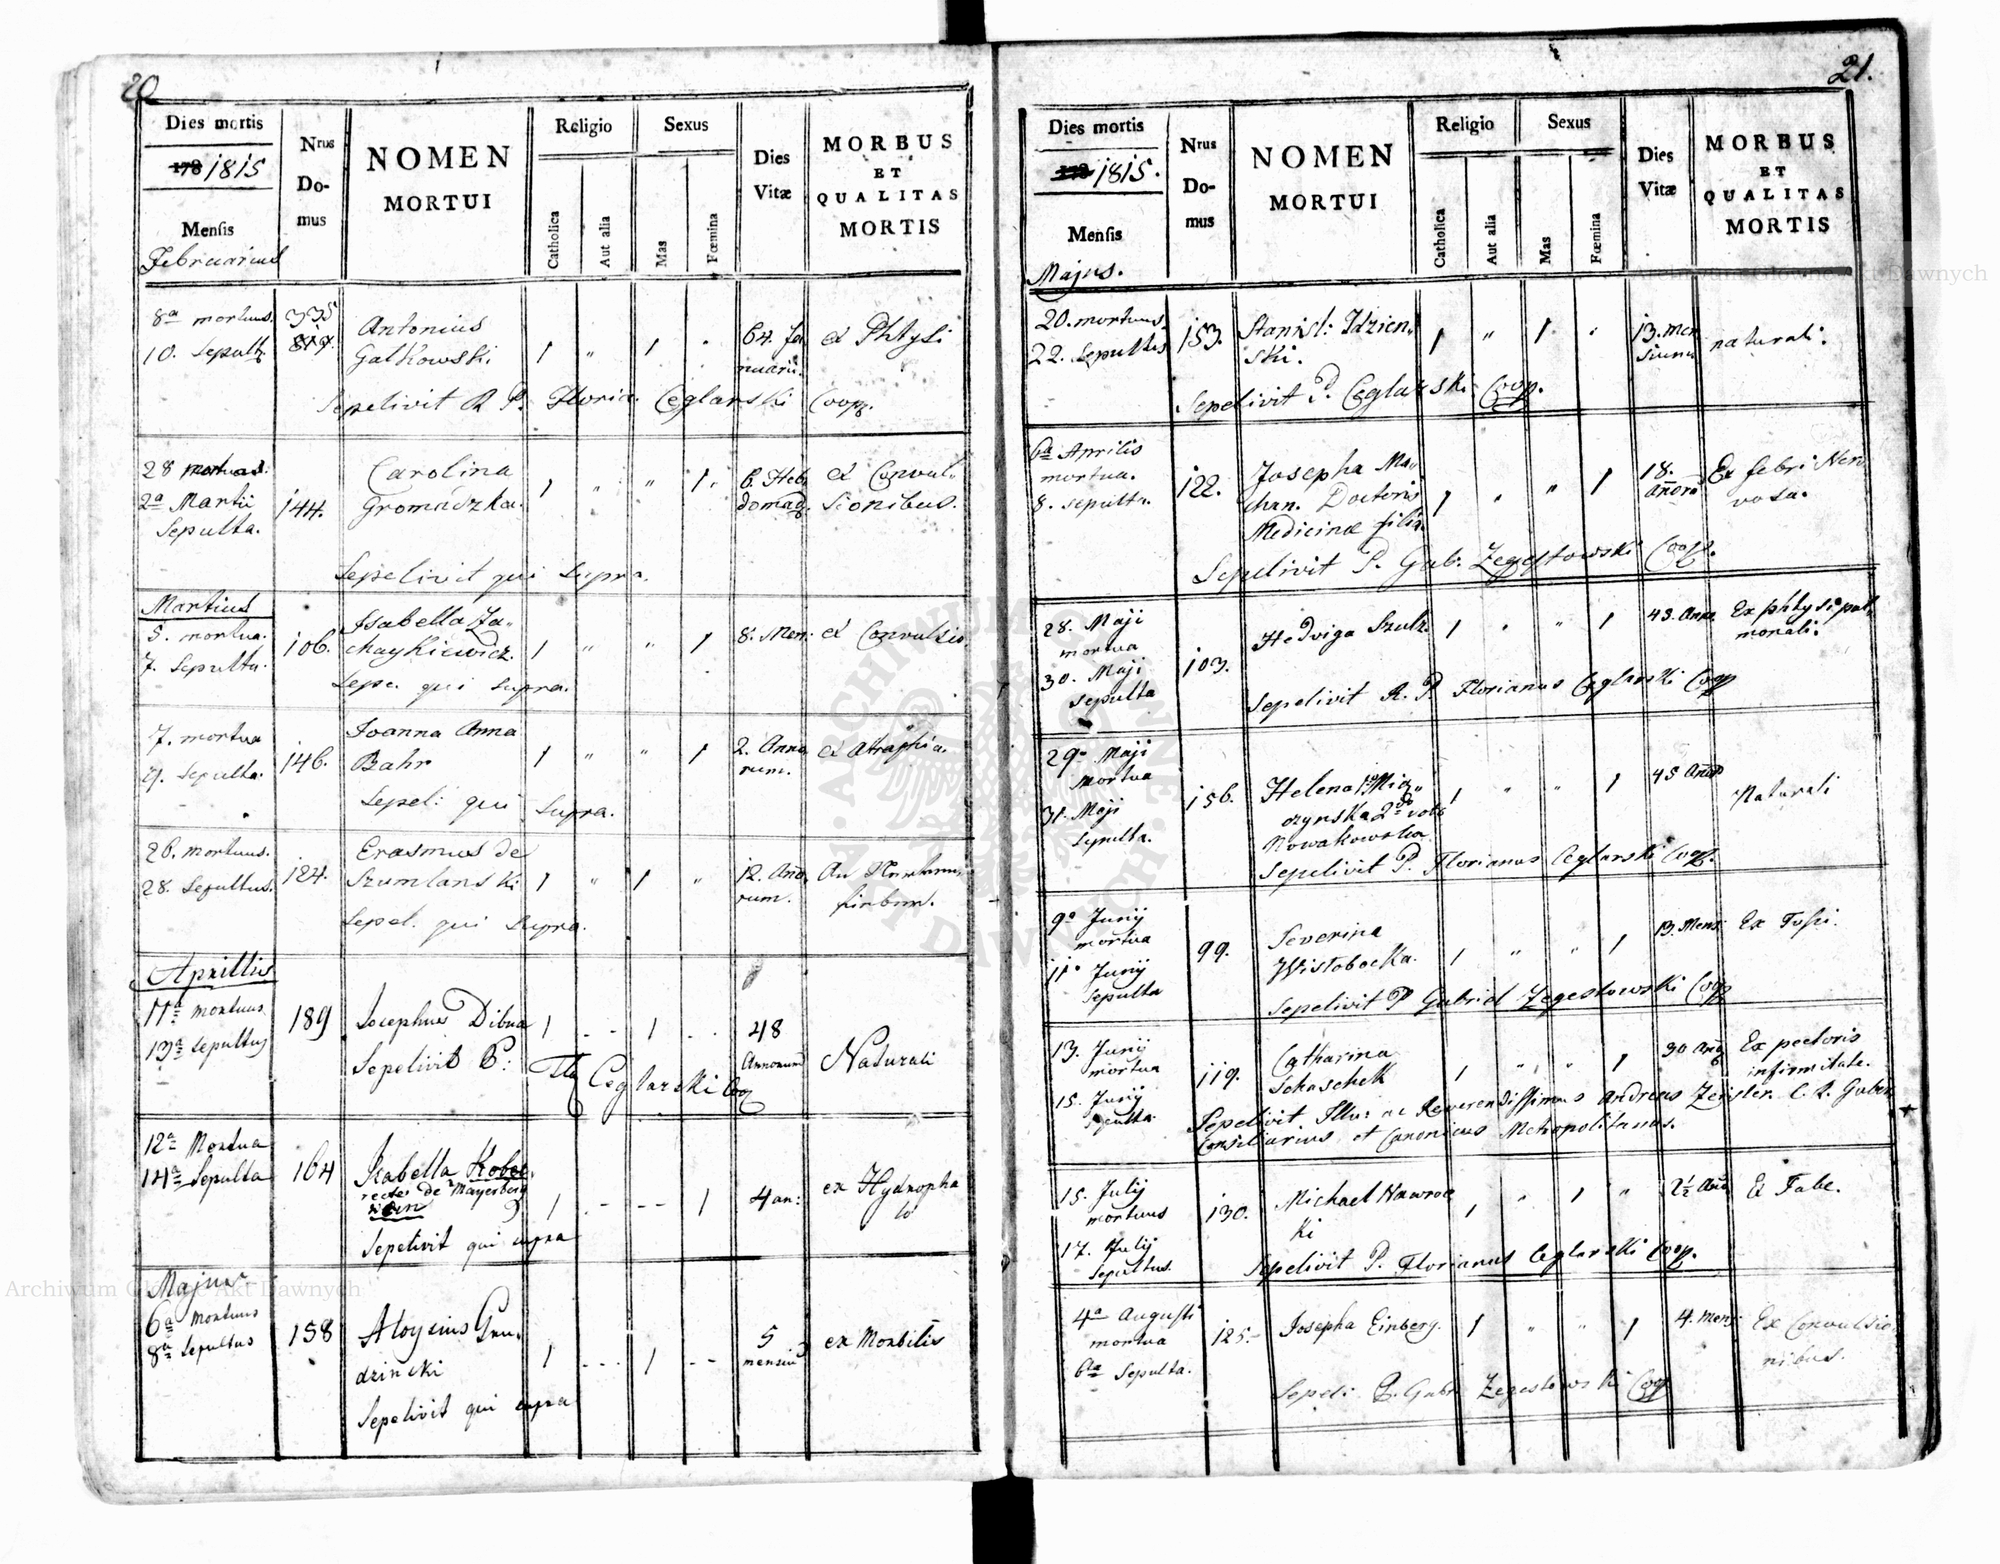 20
Dies mortis
178 1815
Mensis
Februarius
Nrus
Do-
mus
NOMEN
MORTUI
Religio
Catholica
Aut alia
Sexus
Mas
Fœmina
Dies
Vitæ
MORBUS
ET
QUALITAS
MORTIS
8a mortuus. 335
10. Sepult.
Antonius
Galkowski 1 " 1 "
64. Ja
nuarii.
ex Phtysi
Sepelivit R. P. Floria. Ceglarski Coop.
28 mortua.
2a Martii
Sepulta.
144.
Carolina
Gromadzka. 1 " " 1.
6. Heb
domad.
ex Convul-
sionibus.
Sepelivit qui supra.
Martius
5. mortua.
7. Sepulta.
106.
Isabella Za-
chaykiewicz. 1 " " 1
8. Men. ex Convulsio
Sepe. qui supra.
7. mortua
9. Sepulta.
146.
Joanna Anna
Bahr 1 " " 1
2. Anno
rum.
ex Atrophia.
Sepeli: qui supra.
26. mortuus.
28. Sepultus.
124.
Erasmus de
Szumlanski 1 " 1 "
12. Año
rum.
Sepel. qui supra.
Aprillis
11a mortuus
13a sepultus
189
Josephus Dibua 1 - - 1 -
48
Annorum
Naturali
Sepelivit P: Ceglarski Coop
12a Mortua
14a Sepulta
164
Izabella Kober
recte de Mayerberg
1 - - - - 1
4 an:
ex Hydropha
lo
Sepelivit qui supra
Majus
6a mortuus
8a sepultus
158
Aloysius Gru-
dzincki 1 - - - 1 - -
5
mensiu
ex Morbilis
Sepelivit qui supra
21.
Dies mortis
178 1815.
Mensis
Majus.
Nrus
Do-
mus
NOMEN
MORTUI
Religio
Catholica
Aut alia
Sexus
Mas
Fœmina
Dies
Vitæ
MORBUS
ET
QUALITAS
MORTIS
20. mortuus.
22. Sepultus
153.
Stanisl: Idzien-
ski. 1 " 1 "
13. men
sium
naturali.
Sepelivit P. Ceglarski Coop.
6a Aprilis
mortua.
8. sepulta.
122.
Josepha Ma-
chan. Doctoris
Medicinæ filia. 1 " " 1
18.
Añoru
Ex febri Ner
vosa.
Sepelivit P. Gab. Zegestowski Coop.
28. Maji
mortua
30. Maji
sepulta
103.
Hedviga Szulz. 1 " " 1
43. Anno. Ex phtysi pul-
monali.
Sepelivit R. P. Florianus Ceglarski Coop
29a Maji
mortua
31. Maji
sepulta.
156.
Helena 1o Mię-
czynska 2do voto
Nowakowska 1 " " 1
45 Año
Naturali
Sepelivit P. Florianus Ceglarski Coop.
9a Junij
mortua
11a Junij
sepulta
99.
Severina
Wistobocka. 1 " " 1
13. Mens. Ex Tussi.
Sepelivit P Gabriel Zegestowski Coop
13. Junij
mortua
15. Junij
sepulta
119.
Catharina
Schaschek 1 " " 1
30 Año
Ex pectoris
infirmitate.
Sepelivit Illus: ac Reverendissimus Andreas Zeisler C. R. Guber
Consiliarius et Canonicus Metropolitanus.
15. Julij
mortuus
17. Julij
sepultus.
130.
Michael Nawroc
ki 1 " 1 "
2½ Año Ex Tabe.
Sepelivit P. Florianus Ceglarski Coop.
4a Augusti
mortua
6ta Sepulta.
125.
Josepha Einberg. 1 " " 1
4. Mens: Ex Convulsio-
nibus.
Sepeli: P. Gabr Zegestowski Coop
Archiwum Główne Akt Dawnych
Archiwum Główne Akt Dawnych
ARCHIWUM GŁÓWNE AKT DAWNYCH